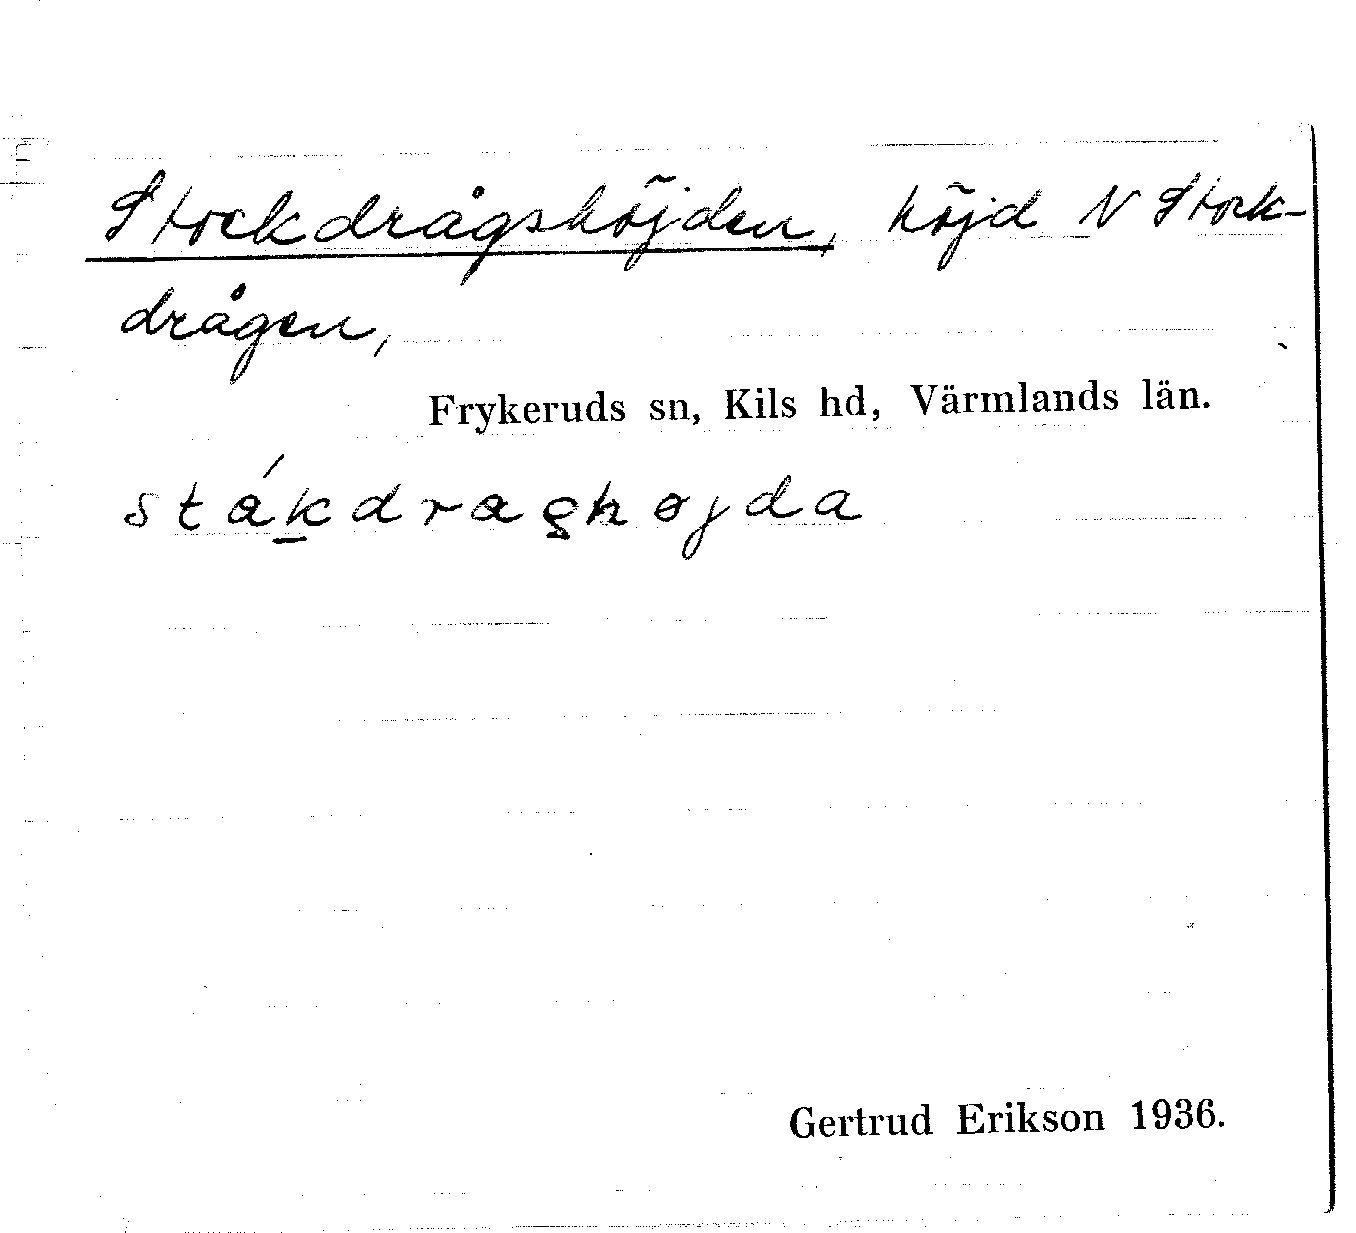 Stockdrågshöjden, höjd N Stock-
drågen,
Frykeruds sn, Kils hd, Värmlands län.
stákdraghøjda
Gertrud Erikson 1936.